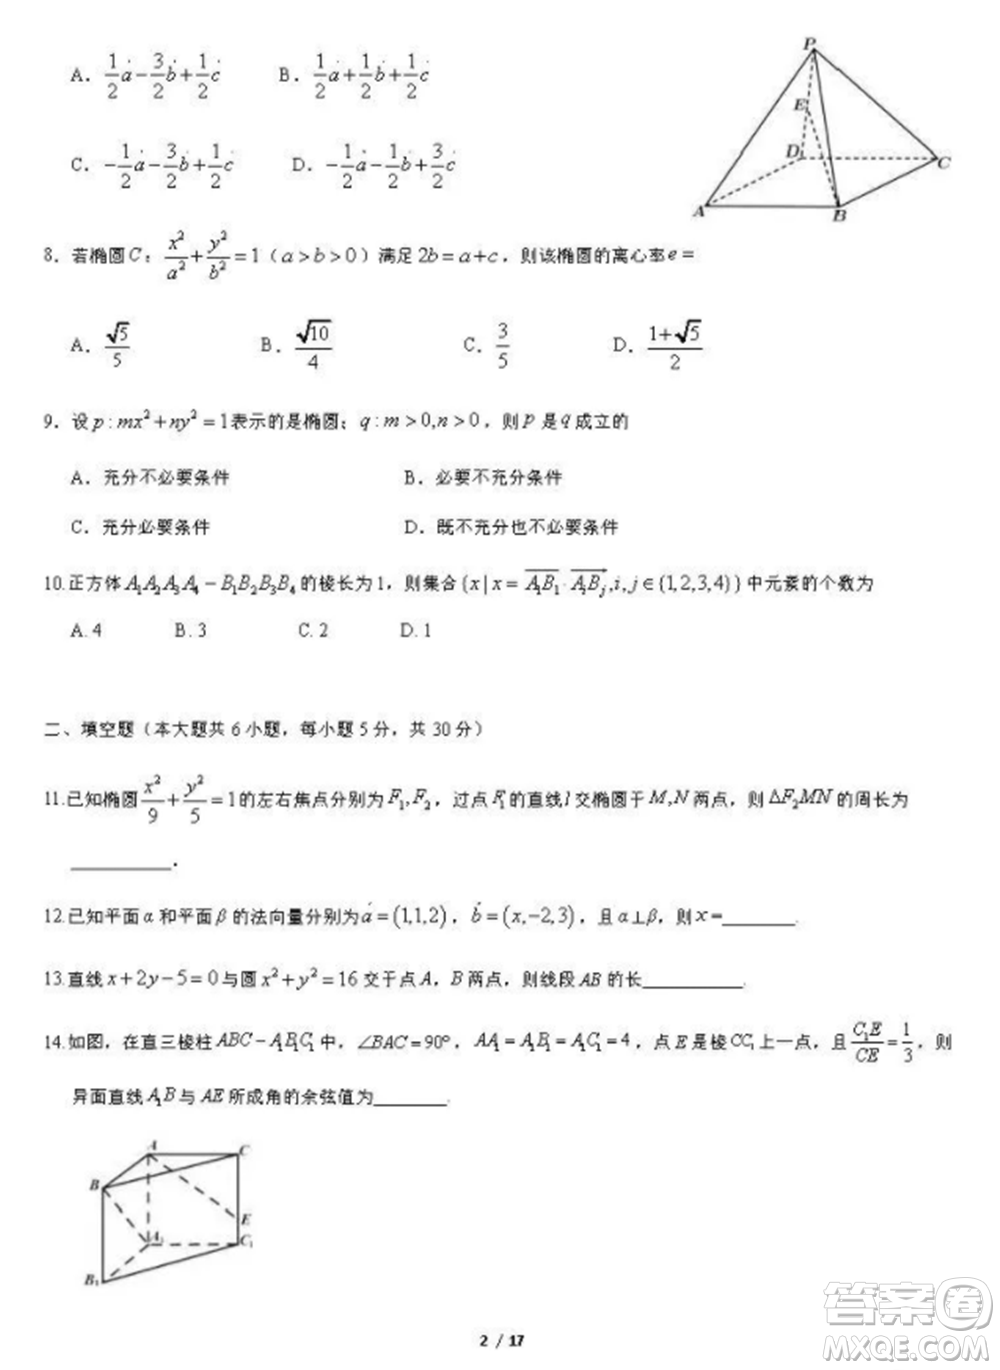 A. $\frac{1}{2}\vec{a}-\frac{3}{2}\vec{b}+\frac{1}{2}\vec{c}$ B. $\frac{1}{2}\vec{a}+\frac{1}{2}\vec{b}+\frac{1}{2}\vec{c}$
C. $-\frac{1}{2}\vec{a}-\frac{3}{2}\vec{b}+\frac{1}{2}\vec{c}$ D. $-\frac{1}{2}\vec{a}-\frac{1}{2}\vec{b}+\frac{3}{2}\vec{c}$
P
E
D
C
A
B
8. 若椭圆 $C:\frac{x^2}{a^2}+\frac{y^2}{b^2}=1$ ($a>b>0$) 满足 $2b=a+c$,则该椭圆的离心率 $e=$
A. $\frac{\sqrt{5}}{5}$ B. $\frac{\sqrt{10}}{4}$ C. $\frac{3}{5}$ D. $\frac{1+\sqrt{5}}{2}$
9. 设 $p:mx^2+ny^2=1$ 表示的是椭圆;$q:m>0,n>0$,则 $p$ 是 $q$ 成立的
A. 充分不必要条件 B. 必要不充分条件
C. 充分必要条件 D. 既不充分也不必要条件
10.正方体 $A_1A_2A_3A_4-B_1B_2B_3B_4$ 的棱长为1,则集合 $\{x|x=\overrightarrow{A_1B_1}\cdot\overrightarrow{A_iB_j},i,j\in\{1,2,3,4\}\}$ 中元素的个数为
A. 4 B. 3 C. 2 D. 1
二、填空题(本大题共6小题,每小题5分,共30分)
11.已知椭圆 $\frac{x^2}{9}+\frac{y^2}{5}=1$ 的左右焦点分别为 $F_1,F_2$,过点 $F_1$ 的直线 $l$ 交椭圆于 $M,N$ 两点,则 $\Delta F_2MN$ 的周长为
__________.
12.已知平面 α 和平面 β 的法向量分别为 $\vec{a}=(1,1,2)$,$\vec{b}=(x,-2,3)$,且 α⊥β,则 $x=$________.
13.直线 $x+2y-5=0$ 与圆 $x^2+y^2=16$ 交于点 A,B 两点,则线段 AB 的长__________.
14.如图,在直三棱柱 $ABC-A_1B_1C_1$ 中,$\angle BAC=90°$,$AA_1=A_1B_1=A_1C_1=4$,点 E 是棱 $CC_1$ 上一点,且 $\frac{C_1E}{CE}=\frac{1}{3}$,则
异面直线 $A_1B$ 与 $AE$ 所成角的余弦值为________.
A
C
B
E
A₁
C₁
B₁
2 / 17
答案卷
MXQE.COM